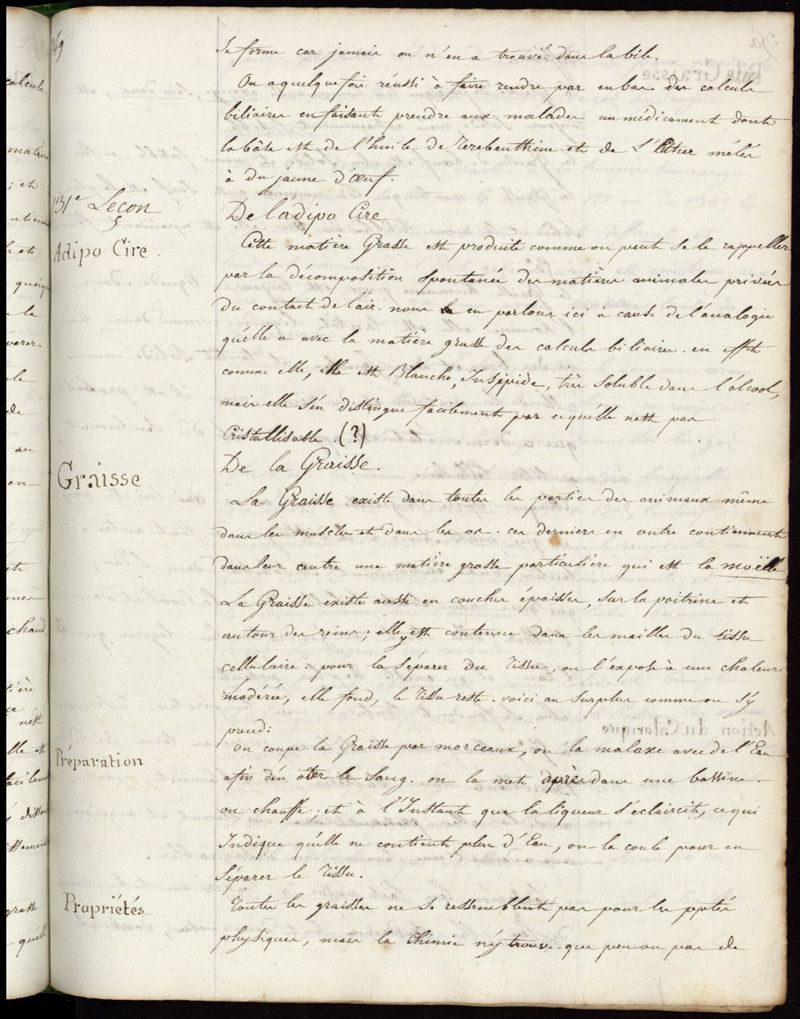 se forme car jamais on n'en a trouvé dans la bile.
On a quelque fois réussi à faire rendre par en bas des calculs
biliaires en faisant prendre aux malades un médicament dont
la bâse est de l'huile de Terebenthine et de L'Ether mêlés
à du jaune d'œuf.
131e Leçon
De l'adipo Cire
Adipo Cire.
Cette matière Grasse est produite comme on peut se le rappeller
par la décomposition spontanée des matières animales privées
du contact de l'air. nous en parlons ici a cause de l'analogie
qu'elle a avec la matière grasse des calculs biliaires. en effet
comme elle, elle est Blanche, Insipide, très soluble dans l'alcool,
mais elle s'en distingue facilement par ce qu'elle n'est pas
Cristallisable. (?)
Graisse
De la Graisse.
La Graisse existe dans toutes les parties des animaux même
dans les muscles et dans les os. ces derniers en outre contiennent
dans leur centre une matière grasse particulière qui est la moëlle
La Graisse existe aussi en couches épaisses, sur la poitrine et
autour des reins; elle y est contenue dans les mailles du tissu
cellulaire: pour la séparer du Tissu, on l'expose à une chaleur
modérée, elle fond, le tissu reste. voici au surplus comme on s'y
prend:
Préparation
On coupe la Graisse par morceaux, on la malaxe avec de l'Eau
afin d'en oter le sang. on la met après dans une bassine.
on chauffe; et à l'Instant que la liqueur s'eclaircit, ce qui
Indique qu'elle ne contient plus d'Eau, on la coule pour en
séparer le Tissu.
Propriétés
Toutes les graisses ne se ressemblent pas pour les pptés
physiques, mais la chimie n'y trouve que peu ou pas de